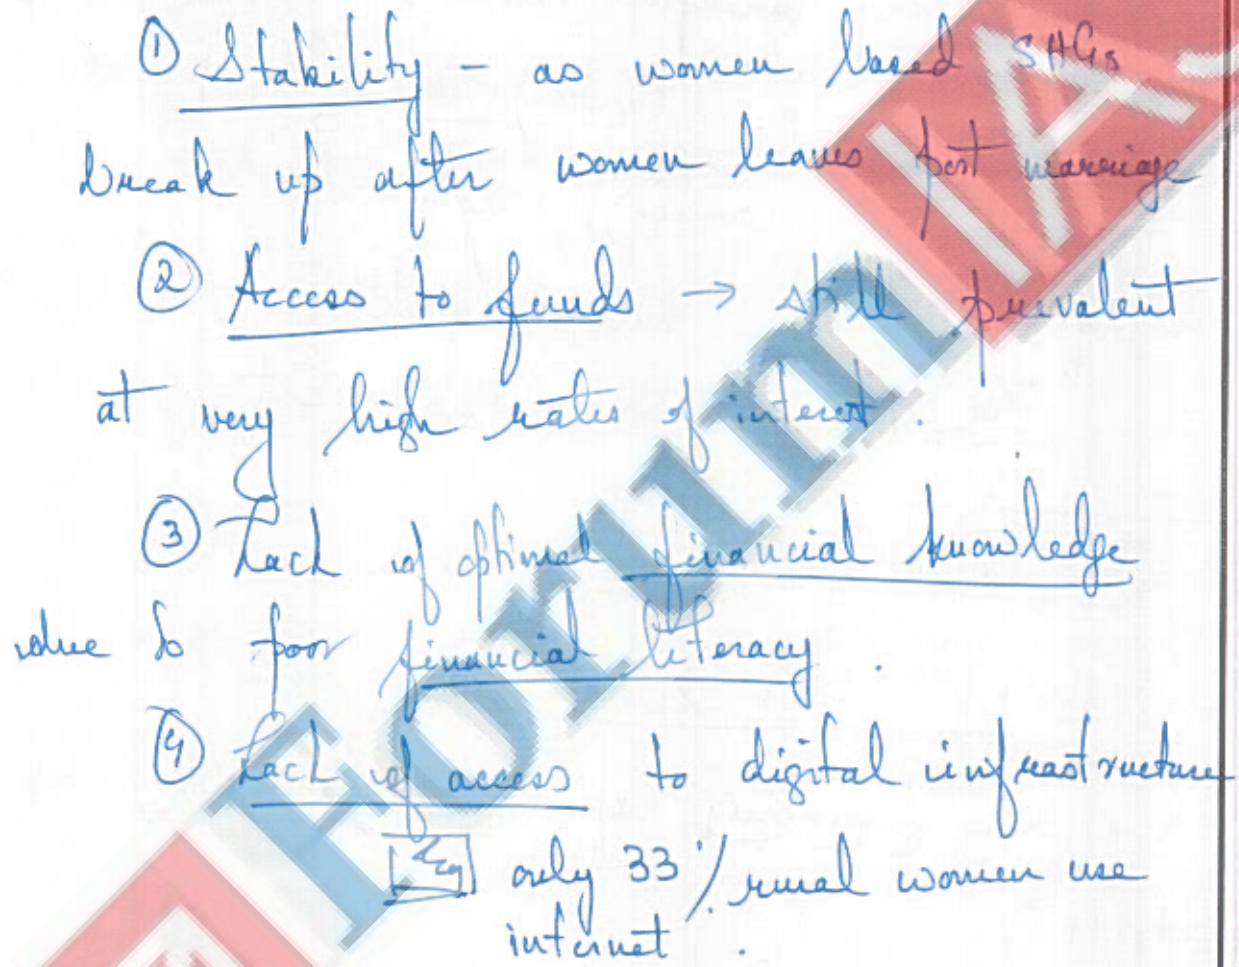 ① Stability - as women based SHGs
break up after women leaves post marriage
② Access to funds → still prevalent
at very high rates of interest.
③ Lack of optimal financial knowledge
due to poor financial literacy.
④ Lack of access to digital infrastructure
Eg only 33% rural women use
internet.
Forum IAS